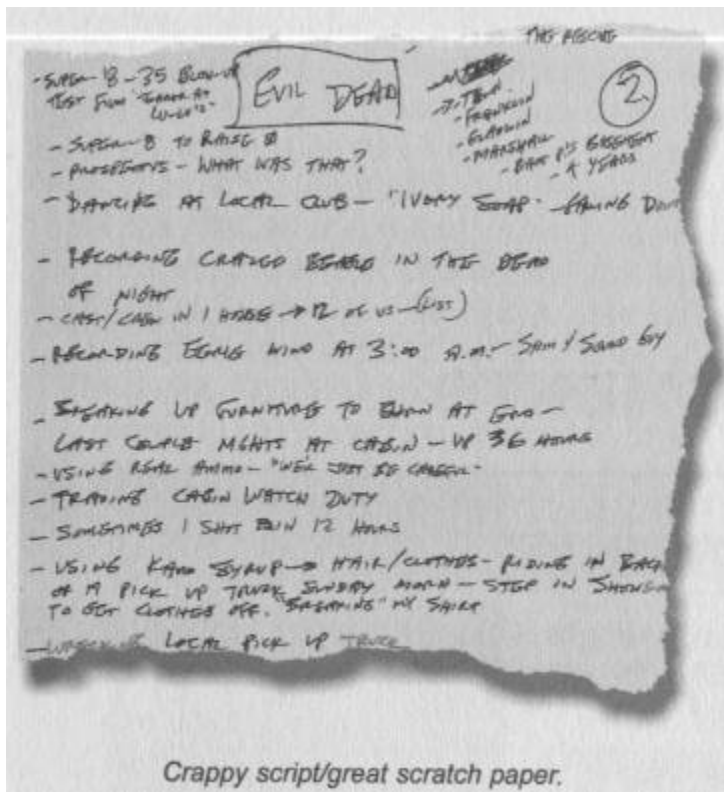 THE RESCUE
- SUPER-8 - 35 BLOW-UP
TEST FROM "TERROR AT
EVIL DEAD
- TENN
- FRANKLIN
- GLADWIN
- MARSHALL
- BART P'S BASEMENT
- 4 YEARS
2.
- SUPER-8 TO RAISE $
- PROSPECTUS - WHAT WAS THAT?
- DANCING AT LOCAL CLUB - "IVORY SOAP"
- RECORDING CRAZED BEAGLE IN THE DEAD
OF NIGHT
- CAST/CREW IN 1 HOUSE → 12 OF US - (LIST)
- RECORDING EERIE WIND AT 3:00 A.M. - SAM & SOUND GUY
- BREAKING UP FURNITURE TO BURN AT END -
LAST COUPLE NIGHTS AT CABIN - UP 36 HOURS
- USING REAL AMMO - "WE'LL JUST BE CAREFUL"
- TRADING CABIN WATCH DUTY
- SOMETIMES 1 SHOT IN 12 HOURS
- USING KARO SYRUP → HAIR/CLOTHES - RIDING IN BACK
OF A PICK UP TRUCK SUNDAY MORN - STEP IN SHOWER
TO GET CLOTHES OFF. "BREAKING" MY SHIRT
- WRECKING LOCAL PICK UP TRUCK
Crappy script/great scratch paper.